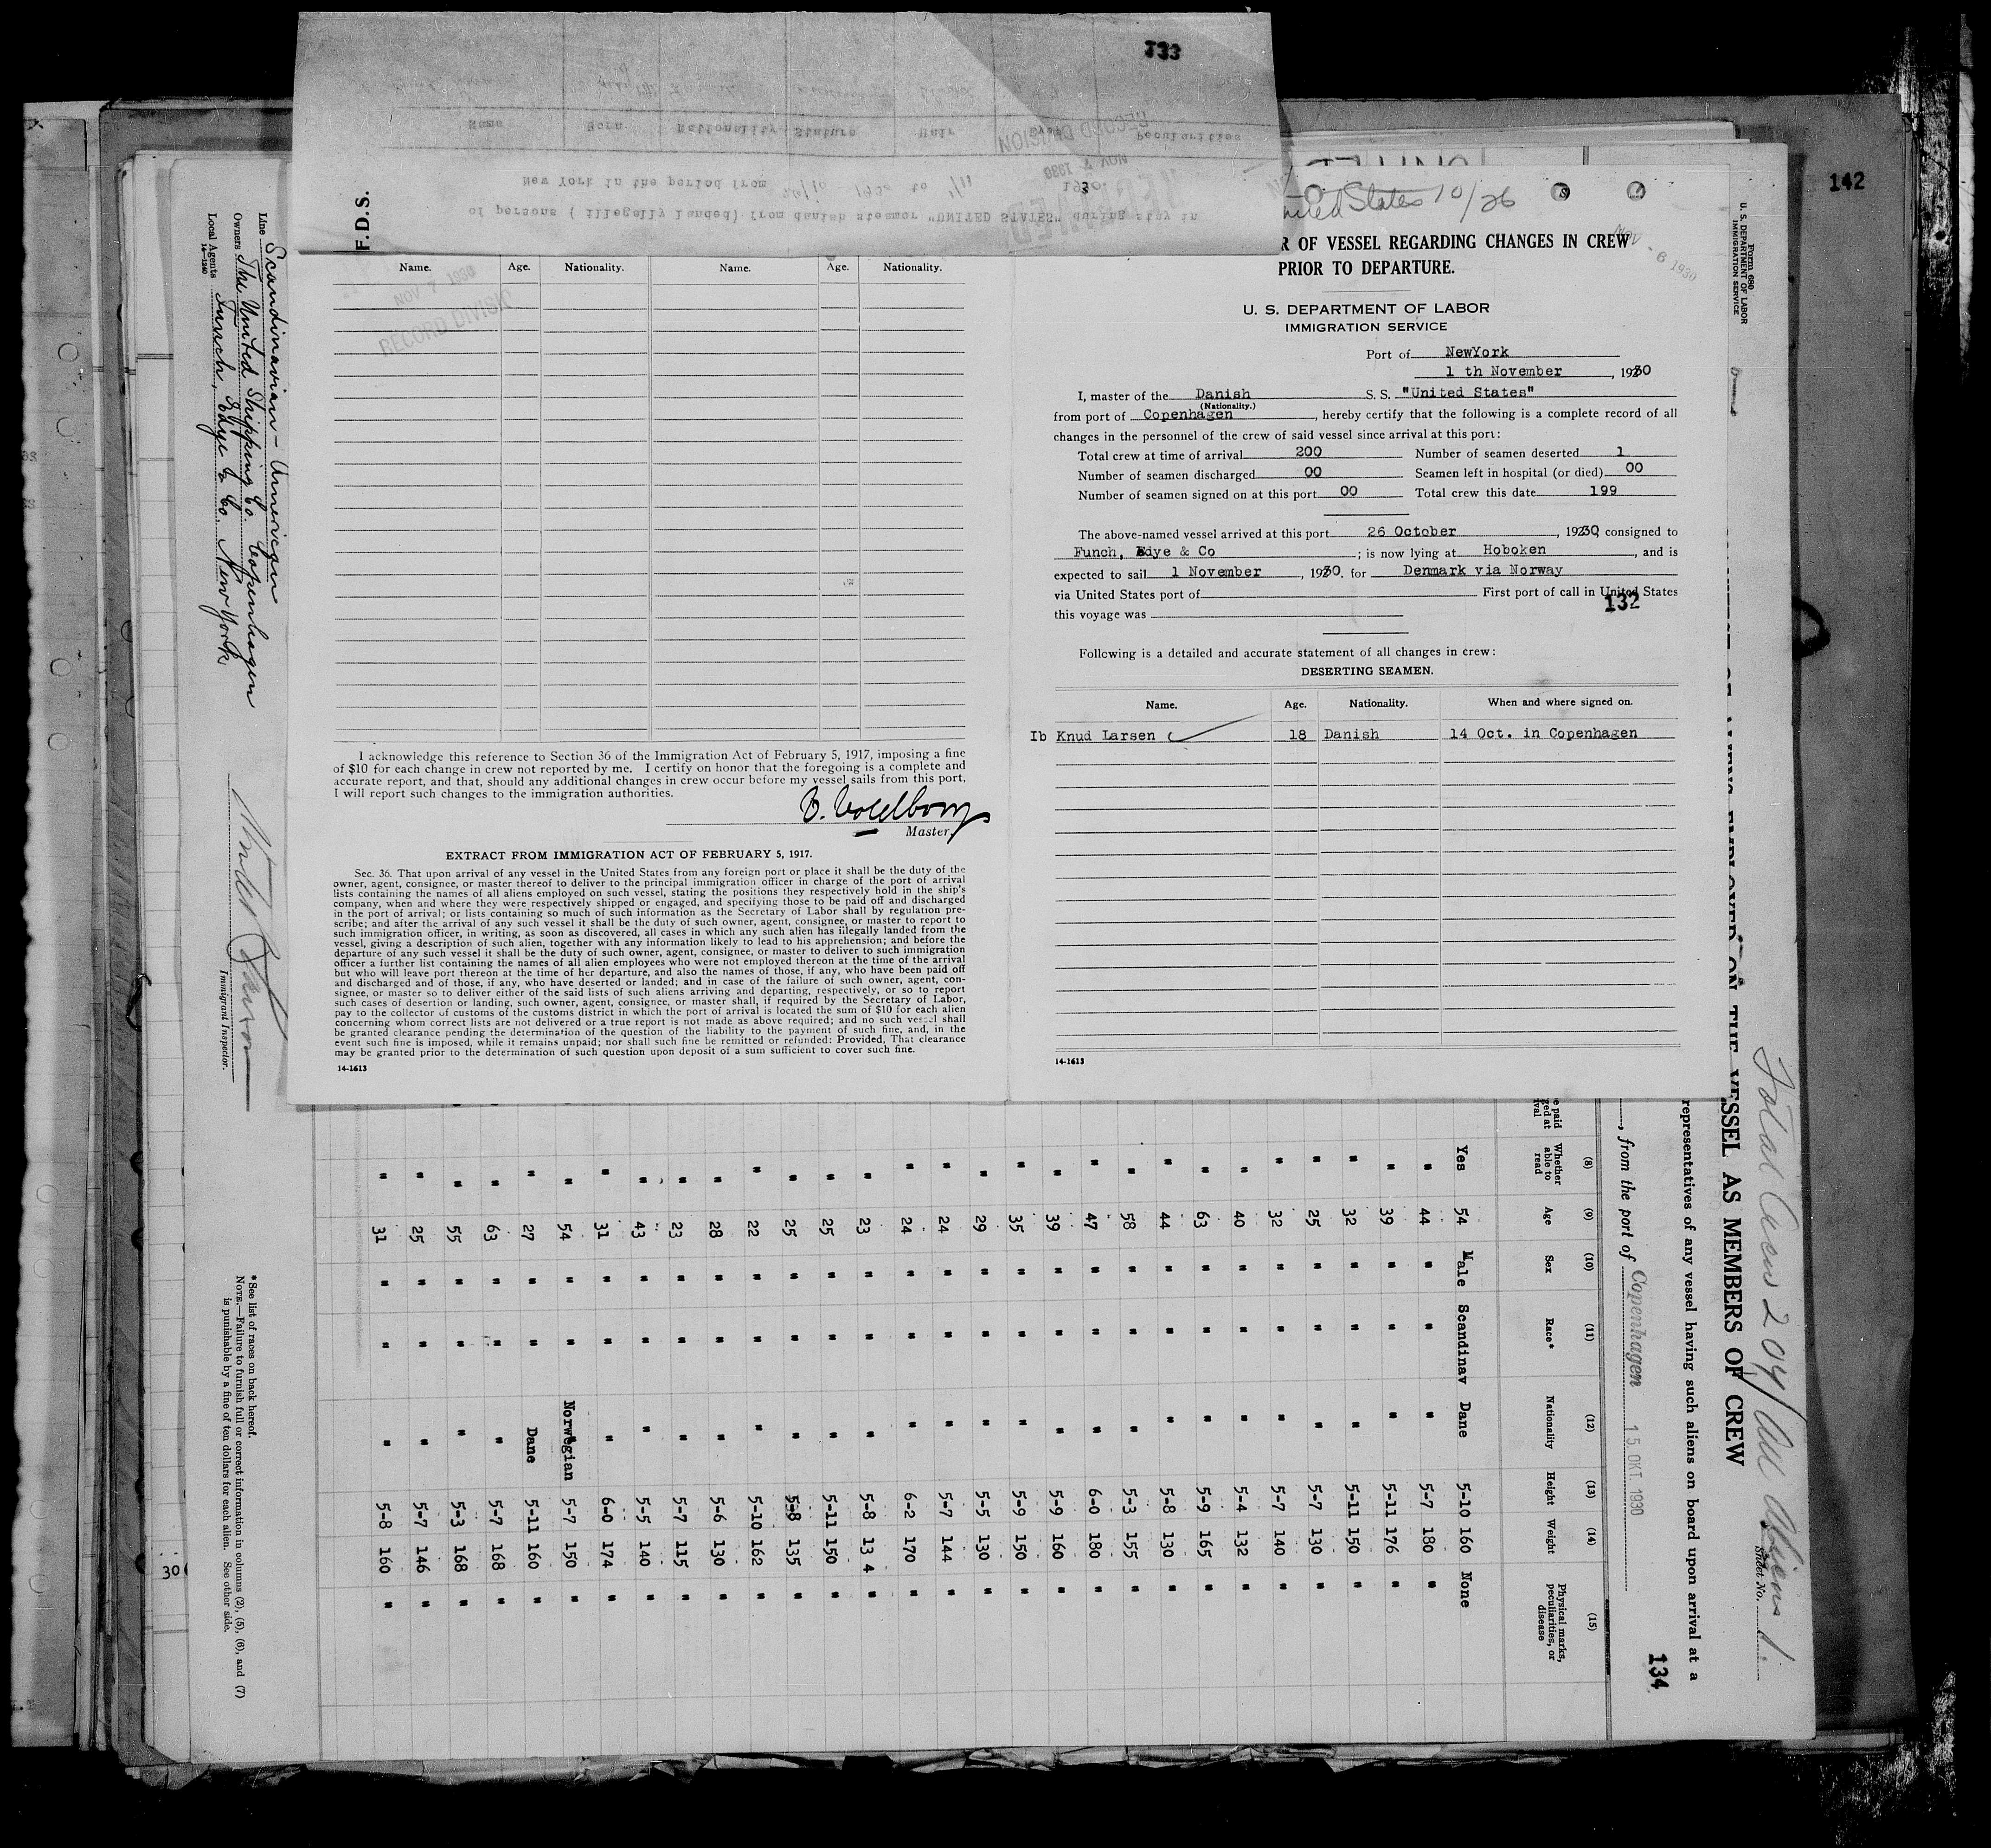 133
142
F.D.S.
Name
Born
Nationality
Stature
Hair
Peculiarities
New York in the period from 1930 to 1/11 1930.
of persons ( illegally landed) from danish steamer "UNITED STATES" during stay in
RECORD DIVISION
NOV 7 1930
United States 10/26
NOV - 6 1930
R OF VESSEL REGARDING CHANGES IN CREW
PRIOR TO DEPARTURE.
U. S. DEPARTMENT OF LABOR
IMMIGRATION SERVICE
Port of NewYork
1 th November, 1930
I, master of the Danish S. S. "United States"
(Nationality.)
from port of Copenhagen, hereby certify that the following is a complete record of all
changes in the personnel of the crew of said vessel since arrival at this port:
Total crew at time of arrival 200 Number of seamen deserted 1
Number of seamen discharged 00 Seamen left in hospital (or died) 00
Number of seamen signed on at this port 00 Total crew this date 199
The above-named vessel arrived at this port 26 October, 1930, consigned to
Funch, Edye & Co; is now lying at Hoboken, and is
expected to sail 1 November, 1930. for Denmark via Norway
via United States port of First port of call in United States
this voyage was
132
Following is a detailed and accurate statement of all changes in crew:
DESERTING SEAMEN.
Name. Age. Nationality. When and where signed on.
Ib Knud Larsen 18 Danish 14 Oct. in Copenhagen
14-1613
Name. Age. Nationality. Name. Age. Nationality.
NOV 7 1930
RECORD DIVISION
I acknowledge this reference to Section 36 of the Immigration Act of February 5, 1917, imposing a fine
of $10 for each change in crew not reported by me. I certify on honor that the foregoing is a complete and
accurate report, and that, should any additional changes in crew occur before my vessel sails from this port,
I will report such changes to the immigration authorities.
Master.
EXTRACT FROM IMMIGRATION ACT OF FEBRUARY 5, 1917.
Sec. 36. That upon arrival of any vessel in the United States from any foreign port or place it shall be the duty of the
owner, agent, consignee, or master thereof to deliver to the principal immigration officer in charge of the port of arrival
lists containing the names of all aliens employed on such vessel, stating the positions they respectively hold in the ship's
company, when and where they were respectively shipped or engaged, and specifying those to be paid off and discharged
in the port of arrival; or lists containing so much of such information as the Secretary of Labor shall by regulation pre-
scribe; and after the arrival of any such vessel it shall be the duty of such owner, agent, consignee, or master to report to
such immigration officer, in writing, as soon as discovered, all cases in which any such alien has illegally landed from the
vessel, giving a description of such alien, together with any information likely to lead to his apprehension; and before the
departure of any such vessel it shall be the duty of such owner, agent, consignee, or master to deliver to such immigration
officer a further list containing the names of all alien employees who were not employed thereon at the time of the arrival
but who will leave port thereon at the time of her departure, and also the names of those, if any, who have been paid off
and discharged and of those, if any, who have deserted or landed; and in case of the failure of such owner, agent, con-
signee, or master so to deliver either of the said lists of such aliens arriving and departing, respectively, or so to report
such cases of desertion or landing, such owner, agent, consignee, or master shall, if required by the Secretary of Labor,
pay to the collector of customs of the customs district in which the port of arrival is located the sum of $10 for each alien
concerning whom correct lists are not delivered or a true report is not made as above required; and no such vessel shall
be granted clearance pending the determination of the question of the liability to the payment of such fine, and, in the
event such fine is imposed, while it remains unpaid; nor shall such fine be remitted or refunded: Provided, That clearance
may be granted prior to the determination of such question upon deposit of a sum sufficient to cover such fine.
14-1613
Form 680
U. S. DEPARTMENT OF LABOR
IMMIGRATION SERVICE
Total Crew 204/All Aliens
Sheet No. 1.
ON THE VESSEL AS MEMBERS OF CREW
representatives of any vessel having such aliens on board upon arrival at a
, from the port of Copenhagen 15 OKT. 1930
134
(8) (9) (10) (11) (12) (13) (14) (15)
Whether able to read Age Sex Race* Nationality Height Weight Physical marks, peculiarities, or disease
Yes 54 Male Scandinav Dane 5-10 160 None
" 44 " " " 5-7 180 "
" 39 " " " 5-11 176 "
" 32 " " " 5-11 150 "
" 25 " " " 5-7 130 "
" 32 " " " 5-7 140 "
" 40 " " " 5-4 132 "
" 63 " " " 5-9 165 "
" 44 " " " 5-8 130 "
" 58 " " " 5-3 155 "
" 47 " " " 6-0 180 "
" 39 " " " 5-9 160 "
" 35 " " " 5-9 150 "
" 29 " " " 5-5 130 "
" 24 " " " 5-7 144 "
" 24 " " " 6-2 170 "
" 23 " " " 5-8 13 4 "
" 25 " " " 5-11 150 "
" 25 " " " 5-8 135 "
" 22 " " " 5-10 162 "
" 28 " " " 5-6 130 "
" 23 " " " 5-7 115 "
" 43 " " " 5-5 140 "
" 31 " " " 6-0 174 "
" 54 " " Norwegian 5-7 150 "
" 27 " " Dane 5-11 160 "
" 63 " " " 5-7 168 "
" 55 " " " 5-3 168 "
" 25 " " " 5-7 146 "
" 31 " " " 5-8 160 "
30
Line Scandinavian-American
Owners The United Shipping Co. Copenhagen
Local Agents Funch, Edye & Co. New York
14-1240
Immigrant Inspector.
*See list of races on back hereof.
NOTE.—Failure to furnish full or correct information in columns (2), (5), (6), and (7)
is punishable by a fine of ten dollars for each alien. See other side.